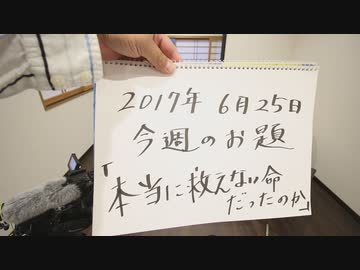 2017年 6月25日
今週のお題
「本当に救えない命
だったのか」